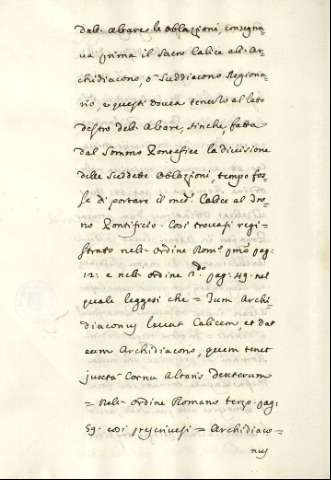 dell'Altare le Oblazioni, consegna=
va prima il Sacro Calice all'Ar=
chidiacono, o Suddiacono Regiona=
rio, e questi dovea tenerlo al lato
destro dell'Altare, finche, fatta
dal Sommo Pontefice la divisione
delle suddette Oblazioni, tempo fos=
se di portare il med.º Calice al Tro=
no Pontificio. Così trovasi regi=
strato nell'Ordine Rom.º p.mo pag:
12: e nell'Ordine 2.do pag: 49: nel
quale leggesi che = Tum Archi=
diaconus levat Calicem, et dat
eum Archidiacono, quem tenet
juxta Cornu Altaris dexterum
= Nell'Ordine Romano terzo pag:
59: così prescrivesi = Archidiaco=
nus